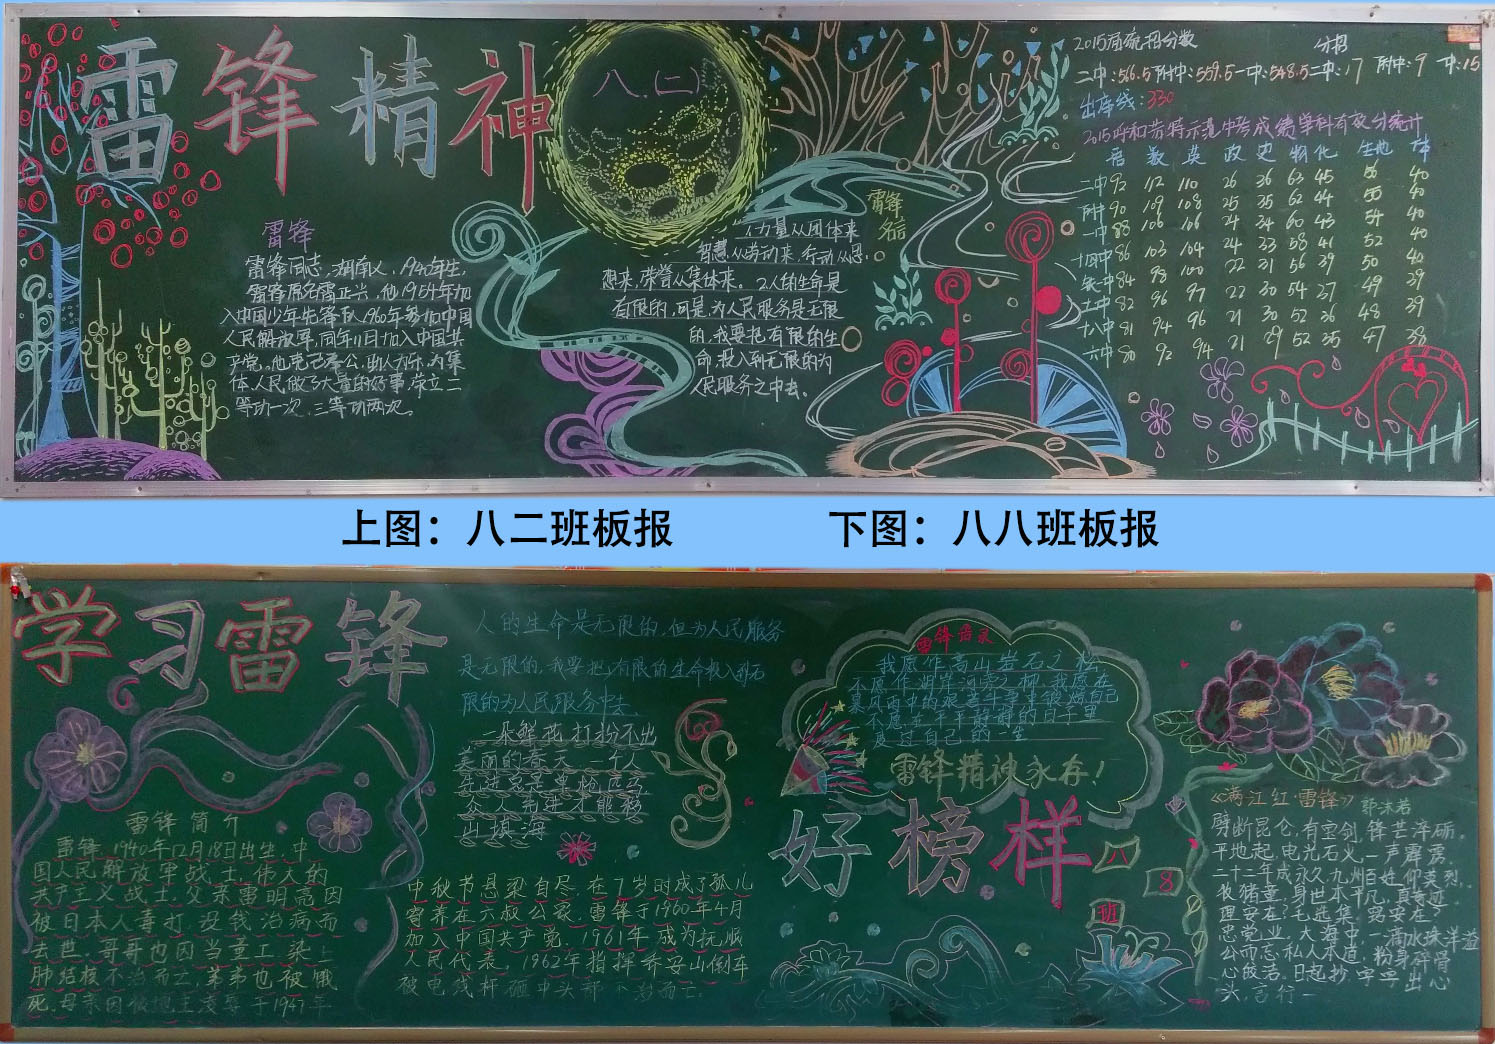 雷锋精神
八.(二)
雷锋
雷锋同志,湖南人,1940年生,
雷锋原名雷正兴,他1954年加
入中国少年先锋队,1960年参加中国
人民解放军,同年11月加入中国共
产党。他克己奉公,助人为乐,为集
体、人民做了大量的好事,荣立二
等功一次,三等功两次。
雷锋
名言
力量从团体来
智慧从劳动来,行动从思
想来,荣誉从集体来。2人的生命是
有限的,可是,为人民服务是无限
的,我要把有限的生
命,投入到无限的为
人民服务之中去。
2015届统招分数 分招
二中:516.5 附中:559.5 一中:548.5 二中:17 附中:9 一中:15
出库线:330
2015呼和浩特示范中考成绩学科有效分统计
语 数 英 政 史 物 化 生地 体
二中 92 112 110 26 36 63 45 56 40
附中 90 109 108 25 35 62 44 55 40
一中 88 106 106 24 34 60 43 54 40
十四中 86 103 104 24 33 58 41 52 40
矢中 84 98 100 22 31 56 39 50 40
土中 82 96 97 22 30 54 37 49 39
十八中 81 94 96 21 30 52 36 48 39
六中 80 92 94 21 29 52 35 47 38
上图：八二班板报 下图：八八班板报
学习雷锋
人的生命是无限的,但为人民服务
是无限的,我要把有限的生命投入到无
限的为人民服务中去
一朵鲜花打扮不出
美丽的春天,一个人
先进总是单枪匹马,
众人先进才能移
山填海
雷锋简介
雷锋,1940年12月18日出生,中
国人民解放军战士,伟大的
共产主义战士,父亲雷明亮因
被日本人毒打,没钱治病而
去世,哥哥也因当童工染上
肺结核不治而亡,弟弟也被饿
死,母亲因被地主凌辱于1947年
中秋节悬梁自尽,在7岁时成了孤儿
寄养在六叔公家,雷锋于1960年4月
加入中国共产党,1961年成为抚顺
人民代表,1962年指挥乔安山倒车
被电线杆砸中头部不治而亡.
雷锋语录
我愿作高山岩石之松
不愿作湖岸河旁之柳,我愿在
暴风雨中的艰苦斗争里锻炼自己
不愿在平平静静的日子里
度过自己的一生
雷锋精神永存!
好榜样
八
8
班
《满江红·雷锋》 郭沫若
劈断昆仑,有宝剑,锋芒淬砺.
平地起,电光石火,一声霹雳.
二十二年成永久,九州百姓仰英烈.
牧猪童,身世本平凡,真奇迹.
理安在?毛选集.窍安在?
忠党业,大海中,一滴水珠洋溢
公而忘私人本道,粉身碎骨
心皎洁.日起抄,字字出心
头,言行一